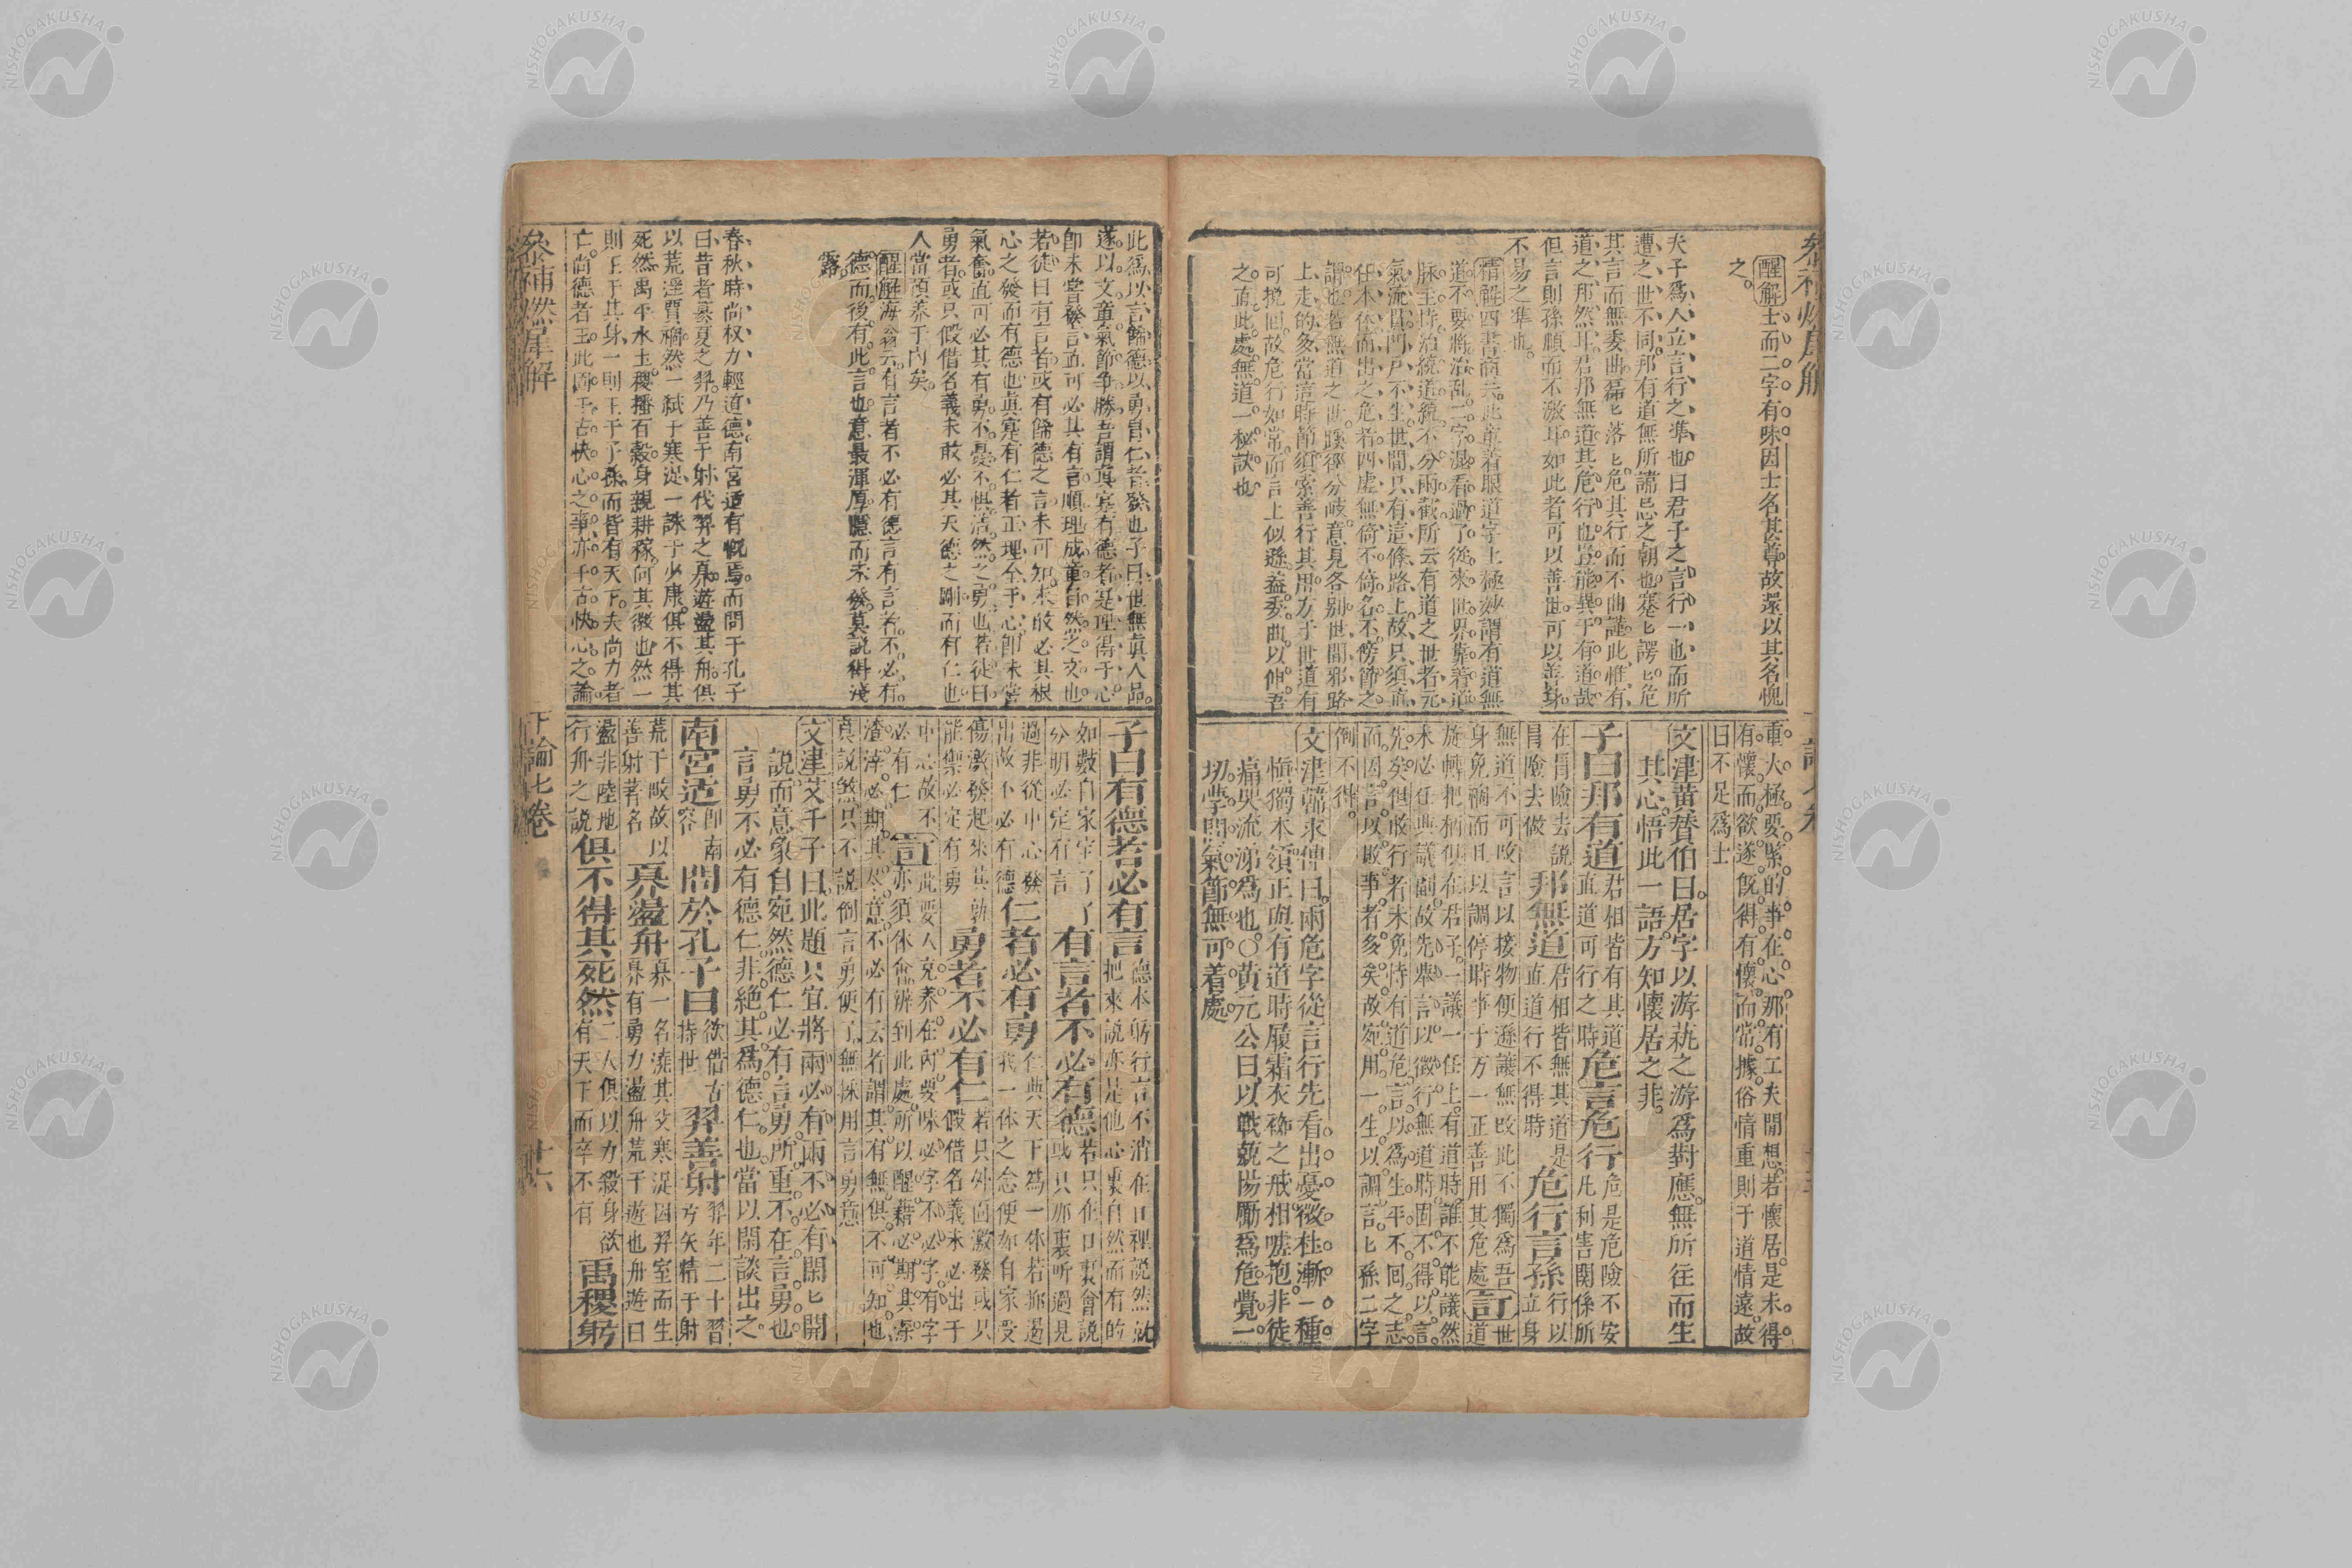 醒解士而二字有味因士名甚尊故還以其名愧
之
夫子爲人立言行之準也曰君子之言行一也而所
遭之世不同邦有道無所諱忌之朝也蹇匕諤匕危
其言而無委曲磊匕落匕危其行而不曲謹此惟有
道之邦然耳君邦無道其危行也豈能異于有道哉
但言則孫順而不激耳如此者可以善世可以善身
不易之準也
精解四書商夫此章着眼道字上極妙謂有道無
道不要將治乱二字混看過了從來世界靠着道
脉主持治統道統不分兩截所云有道之世者元
氣流貫門戸不生世間只有這條路上故只須直
任本体而出之危者四虛無倚不倚名不傍節之
謂也若無道之世蹊徑分岐意見各别世間邪路
上走的多當這時節須索善行其用方于世道有
可挽回故危行如常而言上似遜益委曲以伸吾
之直此處無道一秘訣也
重大極要緊的事在心那有工夫閒想若懷居是未得
有懷而欲遂旣得有懷而常據俗情重則于道情遠故
曰不足爲士
文津黄替伯曰居字以游埶之游爲對應無所往而生
其心悟此一語方知懷居之非
子曰邦有道君相皆有其道直道可行之時危言危行危是危險不安凡利害関係所
在冐險去說冐險去做邦無道君相皆無其道是直道行不得時危行言孫行以立身
無道不可改言以接物便遜讓無改此不獨爲吾
身免禍而且以調停時事于万一正善用其危處訂世道
旋轉把柄俱在君子一議一任上有道時誰不能議然
未必任與議副故先舉言以徵行無道時固不得以言
先矣但敢行者未免恃有道危言以爲生平不回之志
而因言以敗事者多矣故宛用一生以調言匕孫二字
倒不得
文津蘇求俾曰兩危字從言行先看出憂微杜漸一種
愼獨本領正與有道時履霜衣袽之戒相嘘抱非徒
痛哭流涕爲也○黄元公曰以戰兢惕厲爲危覺一
切學問氣節無可着處
此爲以言餙德以勇冐仁者發也子曰世無眞人品
遂以文章氣節争勝吾謂真寔有德者是理得于心
卽未嘗發言直可必其有言順理成章自然之文也
若徒曰有言者或有餙德之言未可知未敢必其根
心之發而有德也眞寔有仁者正理全于心卽未嘗
氣奮直可必其有勇不憂不惧浩然之勇也若徒曰
勇者或只假借名義未敢必其天德之剛而有仁也
人當預養于内矣
醒解海翁云有言者不必有德言有言者不必有
德而後有此言也意最渾厚隱而未發莫說得淺
露
春秋時尚权力輕道德南宮适有慨焉而問于孔子
曰昔者𬀩夏之羿乃善于射代羿之奡遊盪其舟俱
以荒淫賈禍然一弑于寒浞一誅于少康俱不得其
死然禹平水土稷播百穀身親耕稼何其微也然一
則王于其身一則王于子孫而皆有天下夫尚力者
亡尚德者王此固千古快心之事亦千古快心之論
子曰有德者必有言德本躬行言不消在口裡說然就把來說亦是他心裏自然而有的
如數自家宝了了分明必定有言有言者不必有德若只在口裏會說或只那裏听過見
過非從中心發出故不必有德仁者必有勇仁與天下爲一体若挪遏我一体之念便如自家受
傷激發起來其勃能禦必定有勇勇者不必有仁若只外面激發或只假借名義未必出于
中心故不必有仁訂此要人克养在内要味必字不必字有字亦須体會辨到此處所以醒藉必期其深
渣滓必期其尽意不必有云者謂其有無俱不可知也
真說煞只不說倒言勇便了無採用言勇意
文津艾千子曰此題只宜將兩必有兩不必有開匕開
說而意象自宛然德仁必有言勇所重不在言勇也
言勇不必有德仁非絶其爲德仁也當以閑談出之
南宮适卽南容問於孔子曰欲借古持世羿善射羿年二十習弓矢精于射
荒于畋故以善射著名奡盪舟奡一名澆其父寒浞因羿室而生奡有勇力盪舟荒于遊也舟遊曰
盪非陸地行舟之說俱不得其死然二人俱以力殺身欲有天下而卒不有禹稷躬
参補燃犀解
下論七卷
廿六